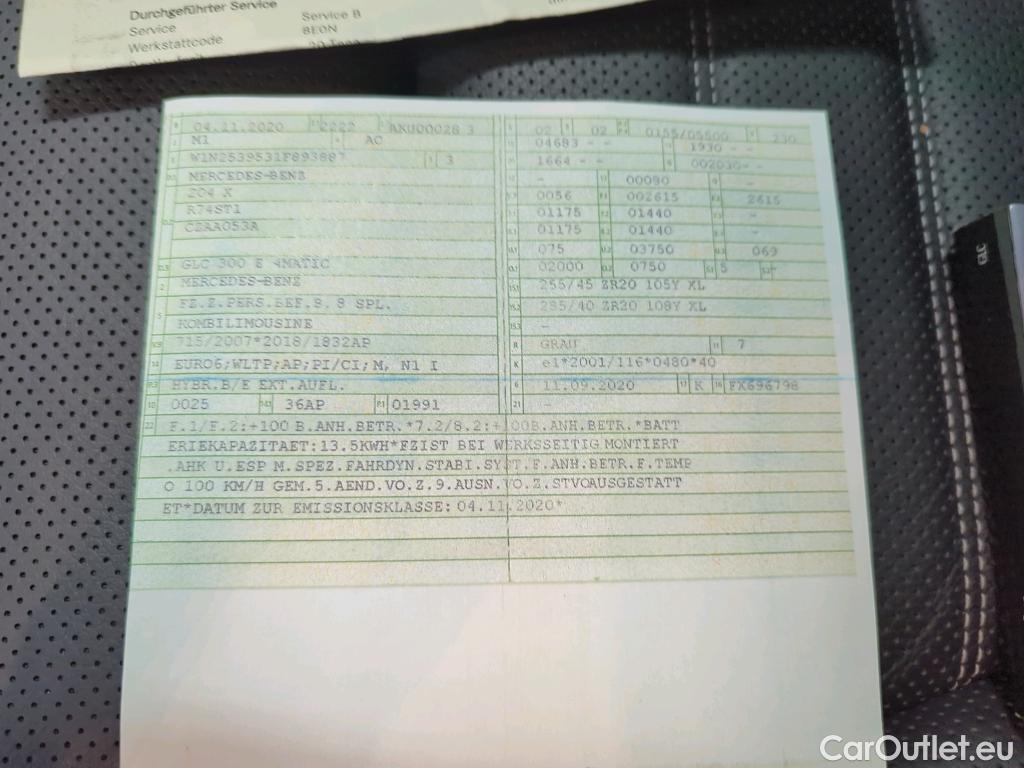 Durchgeführter Service
Service Service B
Werkstattcode BEON
04.11.2020 2222 AKU00028 3
M1 AC
W1N2539531F893887 3
MERCEDES-BENZ
204 X
R74ST1
CZAA053A
GLC 300 E 4MATIC
MERCEDES-BENZ
FZ.Z.PERS.BEF.B. 8 SPL.
KOMBILIMOUSINE
715/2007*2018/1832AP
EURO6;WLTP;AP;PI/CI; M, N1 I
HYBR.B/E EXT.AUFL.
10 0025 14.1 36AP P.1 01991
02 02 0155/05500 230
04683 - - 1930 - -
1664 - - 002030- -
- 00090 -
0056 002615 2615
01175 01440 -
01175 01440 -
075 03750 069
02000 0750 S.1 5 S.2 -
255/45 ZR20 105Y XL
285/40 ZR20 108Y XL
-
R GRAU 11 7
K e1*2001/116*0480*40
6 11.09.2020 17 K 16 FX696798
21 -
22 F.1/F.2:+100 B.ANH.BETR.*7.2/8.2:+100B.ANH.BETR.*BATT
ERIEKAPAZITAET:13.5KWH*FZIST BEI WERKSSEITIG MONTIERT
.AHK U.ESP M.SPEZ.FAHRDYN.STABI.SYST.F.ANH.BETR.F.TEMP
O 100 KM/H GEM.5.AEND.VO.Z.9.AUSN.VO.Z.STVOAUSGESTATT
ET*DATUM ZUR EMISSIONSKLASSE: 04.11.2020*
GLC
CarOutlet.eu